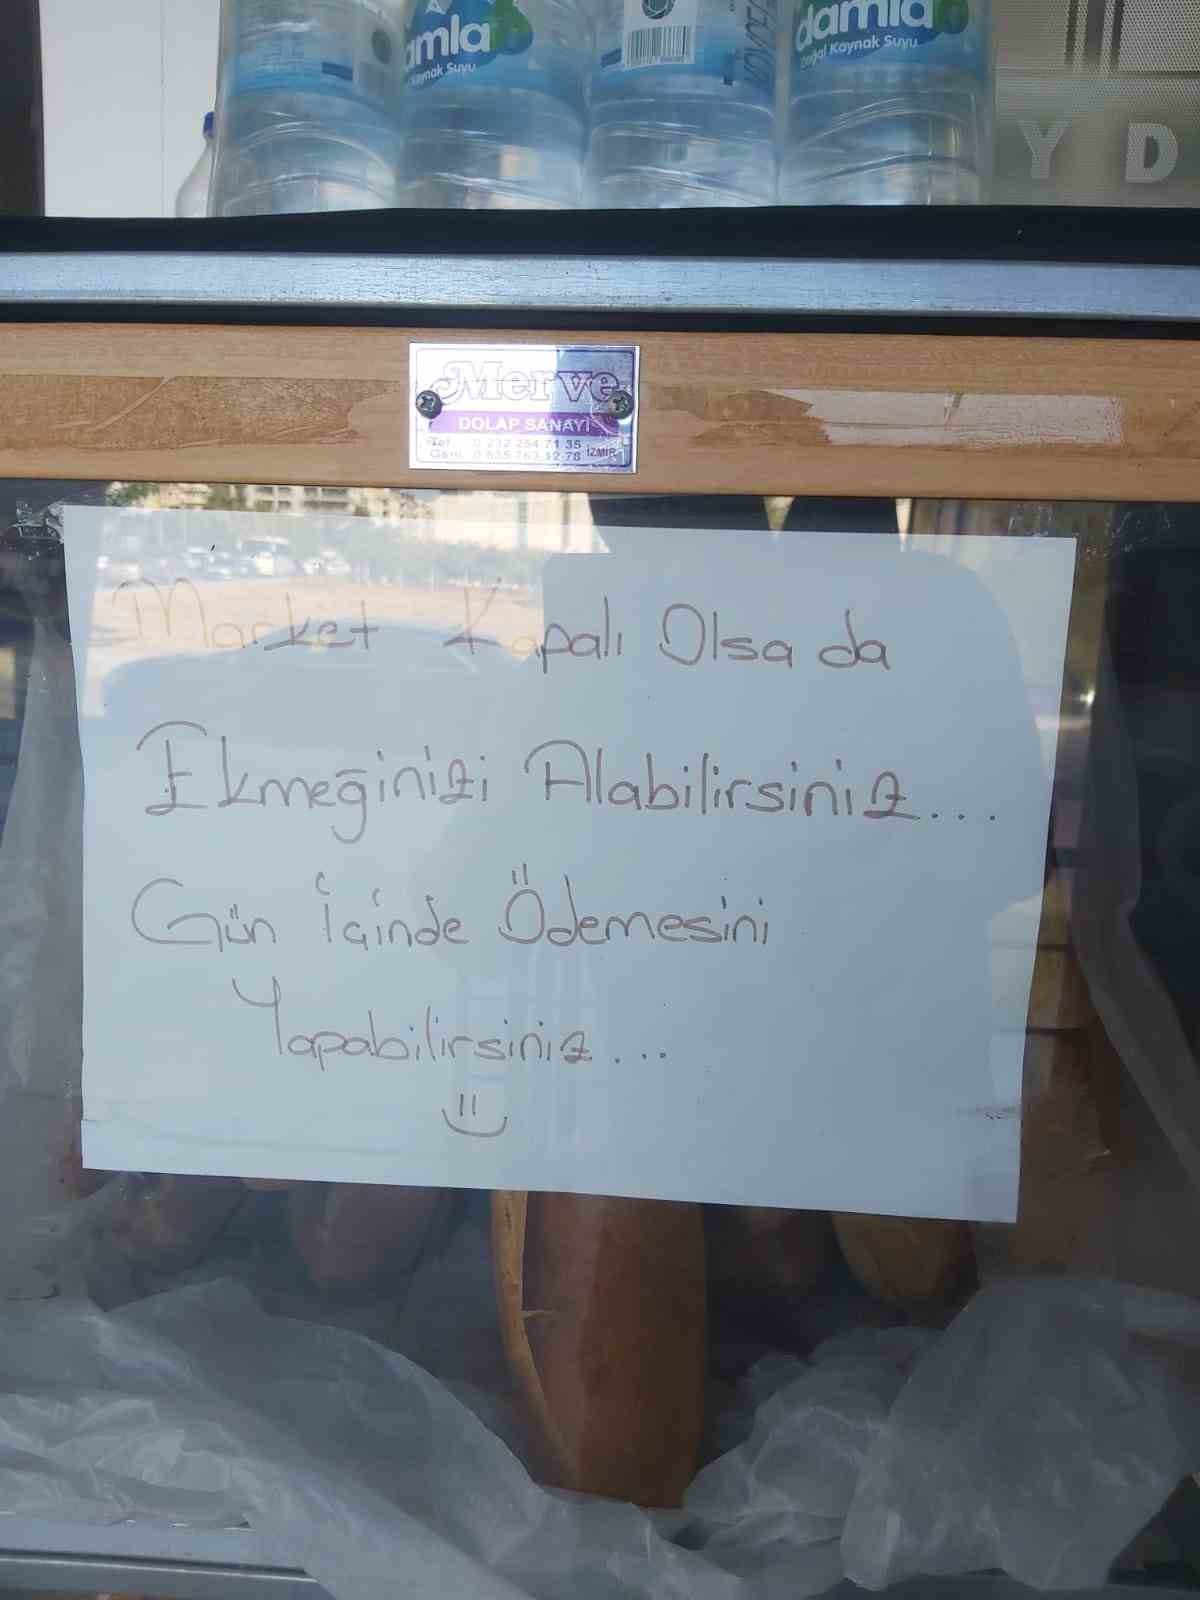 damla
Doğal Kaynak Suyu
amla
Kaynak Suyu
Y D
Merve
DOLAP SANAYİ
Tel : 0 232 254 71 35
Gsm : 0 535 763 12 78 İZMİR
Market Kapalı Olsa da
Ekmeğinizi Alabilirsiniz...
Gün İçinde Ödemesini
Yapabilirsiniz...